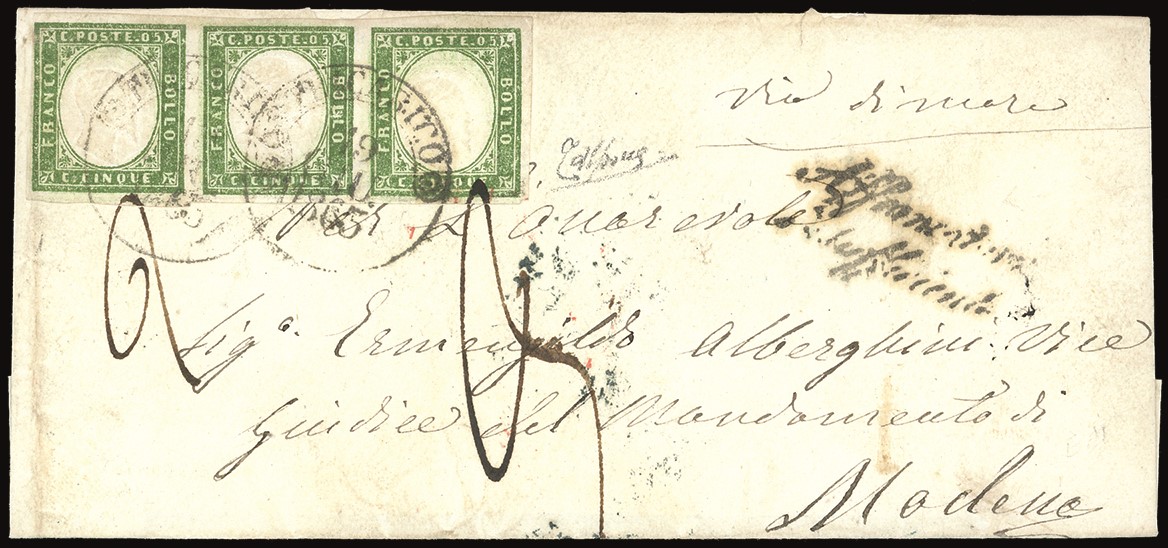 C. POSTE. 05. C. POSTE. 05. C. POSTE. 05.
FRANCO BOLLO FRANCO BOLLO FRANCO BOLLO
C. CINQUE C. CINQUE C. CINQUE
Via di mare
Affrancatura
insufficiente
Per L'Onorevole
Sigr Ermenegildo Alberghini Vice
Giudice del Mandamento di
Modena